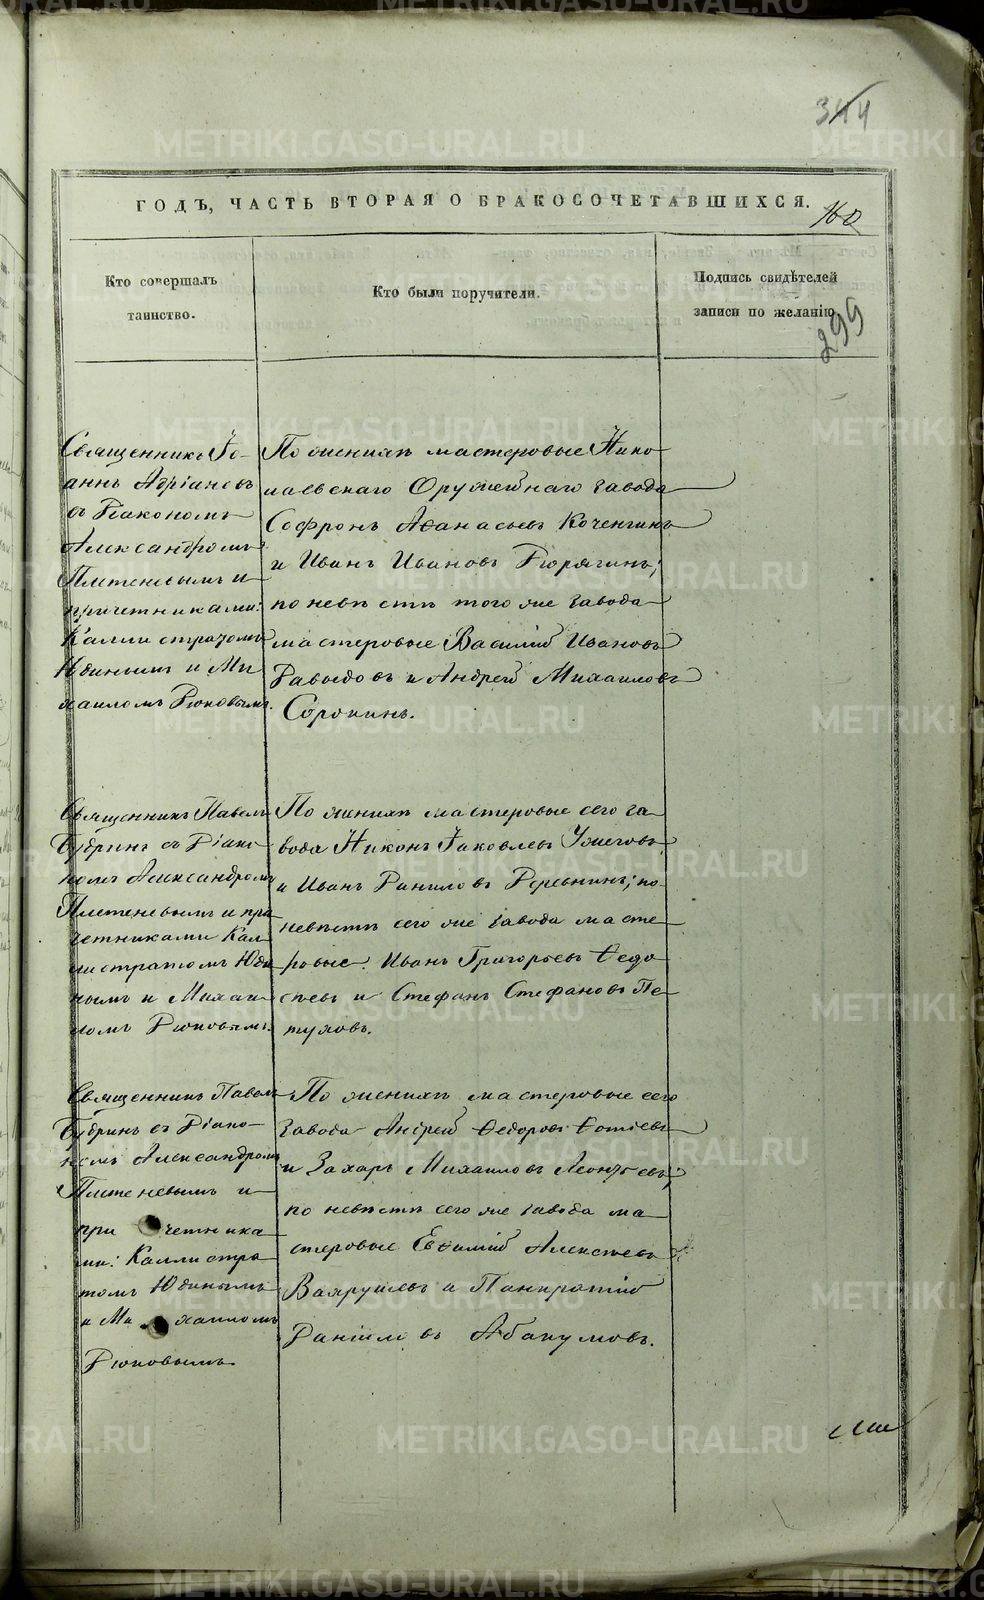 344
ГОДЪ, ЧАСТЬ ВТОРАЯ О БРАКОСОЧЕТАВШИХСЯ.
160
Кто совершалъ
таинство.
Кто были поручители.
Подпись свидѣтелей
записи по желанію.
299
Священникъ Іо-
аннъ Адріановъ
съ Діакономъ
Александромъ
Плетеневымъ и
причетниками:
Каллистратомъ
Юдинымъ и Ми
хаиломъ Дюковымъ.
По женихѣ мастеровые Нико
лаевскаго Оружейнаго завода
Софронъ Аѳанасьевъ Коченгинъ
и Иванъ Ивановъ Дюрягинъ;
по невѣстѣ того же завода
мастеровые Василій Ивановъ
Давыдовъ и Андрей Михаиловъ
Сорокинъ.
Священникъ Павелъ
Бубринъ съ Діако
номъ Александромъ
Плетеневымъ и при
четниками Кал
листратомъ Юди
нымъ и Михаи
ломъ Дюковымъ.
По женихѣ мастеровые сего за
вода Никонъ Іаковлевъ Ужеговъ
и Иванъ Даниловъ Деревнинъ; по
невѣстѣ сего же завода масте
ровые: Иванъ Григорьевъ Ѳедо
сѣевъ и Стефанъ Стефановъ Пе
туховъ.
Священникъ Павелъ
Бубринъ съ Діако-
номъ Александромъ
Плетеневымъ и
при четника
ми: Каллистра
томъ Юдинымъ
и Ми хаиломъ
Дюковымъ
По женихѣ мастеровые сего
завода Андрей Ѳедоровъ Ѳотіевъ
и Захаръ Михаиловъ Леонтьевъ;
по невѣстѣ сего же завода ма
стеровые Евѳимій Алексѣевъ
Вахрушевъ и Панкратій
Даніиловъ Абакумовъ.
METRIKI.GASO-URAL.RU